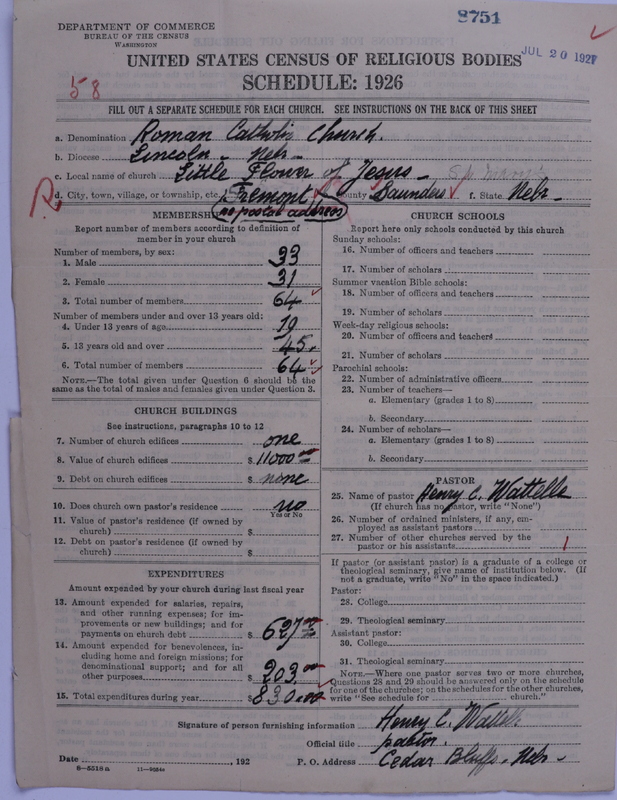 8751
DEPARTMENT OF COMMERCE
BUREAU OF THE CENSUS
WASHINGTON
JUL 20 1927
UNITED STATES CENSUS OF RELIGIOUS BODIES
SCHEDULE: 1926
58
FILL OUT A SEPARATE SCHEDULE FOR EACH CHURCH. SEE INSTRUCTIONS ON THE BACK OF THIS SHEET
a. Denomination Roman Catholic Church.
b. Diocese Lincoln - Nebr -
c. Local name of church Little Flower of Jesus -
R
d. City, town, village, or township, etc. Fremont e. County Saunders f. State Nebr -
no postal address
MEMBERSHIP
Report number of members according to definition of member in your church
Number of members, by sex:
1. Male 33
2. Female 31
3. Total number of members 64
Number of members under and over 13 years old:
4. Under 13 years of age 19
5. 13 years old and over 45
6. Total number of members 64
NOTE.—The total given under Question 6 should be the same as the total of males and females given under Question 3.
CHURCH BUILDINGS
See instructions, paragraphs 10 to 12
7. Number of church edifices one
8. Value of church edifices $ 11000 00
9. Debt on church edifices $ none
10. Does church own pastor's residence no
Yes or No
11. Value of pastor's residence (if owned by church) $
12. Debt on pastor's residence (if owned by church) $
EXPENDITURES
Amount expended by your church during last fiscal year
13. Amount expended for salaries, repairs, and other running expenses; for improvements or new buildings; and for payments on church debt $ 627 00
14. Amount expended for benevolences, including home and foreign missions; for denominational support; and for all other purposes $ 203 00
15. Total expenditures during year $ 830.00
CHURCH SCHOOLS
Report here only schools conducted by this church
Sunday schools:
16. Number of officers and teachers
17. Number of scholars
Summer vacation Bible schools:
18. Number of officers and teachers
19. Number of scholars
Week-day religious schools:
20. Number of officers and teachers
21. Number of scholars
Parochial schools:
22. Number of administrative officers
23. Number of teachers—
a. Elementary (grades 1 to 8)
b. Secondary
24. Number of scholars—
a. Elementary (grades 1 to 8)
b. Secondary
PASTOR
25. Name of pastor Henry C. Wattelle
(If church has no pastor, write "None")
26. Number of ordained ministers, if any, employed as assistant pastors
27. Number of other churches served by the pastor or his assistants 1
If pastor (or assistant pastor) is a graduate of a college or theological seminary, give name of institution below. (If not a graduate, write "No" in the space indicated.)
Pastor:
28. College
29. Theological seminary
Assistant pastor:
30. College
31. Theological seminary
NOTE.—Where one pastor serves two or more churches, Questions 28 and 29 should be answered only on the schedule for one of the churches; on the schedules for the other churches, write "See schedule for church."
Signature of person furnishing information Henry C. Wattelle
Official title pastor.
Date , 192 P. O. Address Cedar Bluffs - Nebr -
8—5518 a 11—9034